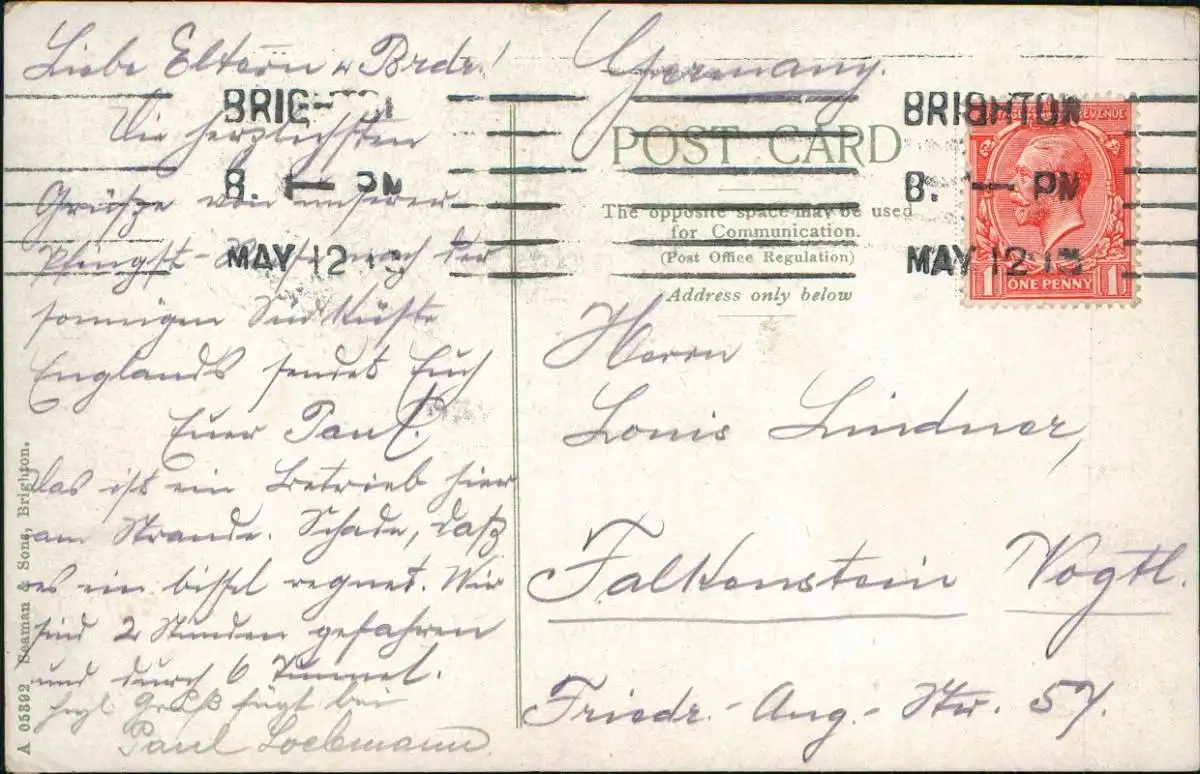 Liebe Eltern u Brdr.!
Die herzlichsten
Grüsze von unserer
Pfingst-Reise nach der
sonnigen Südküste
Englands sendet Euch
Euer Paul.
Das ist ein Betrieb hier
am Strande. Schade, daß
es ein bissel regnet. Wir
sind 2 Stunden gefahren
und durch 6 Tunnel.
hzgl Gruß fügt bei
Paul Loebmann
A 05892 Seaman & Sons, Brighton.
BRIGHTON
8. PM
MAY 12
Germany.
POST CARD
The opposite space may be used
for Communication.
(Post Office Regulation)
Address only below
BRIGHTON
8. PM
MAY 12
POSTAGE REVENUE
1 ONE PENNY 1
Herrn
Louis Lindner,
Falkenstein Vogtl.
Friedr.-Aug.-Str. 57.